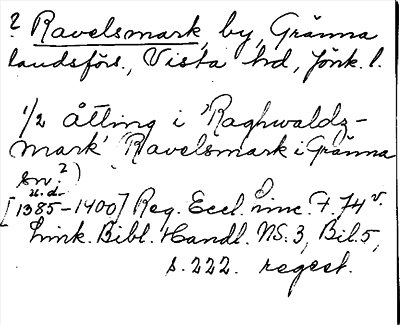 ? Ravelsmark, by, Gränna
landsförs., Vista hd, Jönk. l.
1/2 åtting i 'Raghwaldz-
mark' (Ravelsmark i Gränna
sn.?)
u.d.
[1385-1400] Reg. Eccl. Linc. F. 74 v.
Link. Bibl. Handl. NS. 3, Bil. 5,
s. 222. regest.